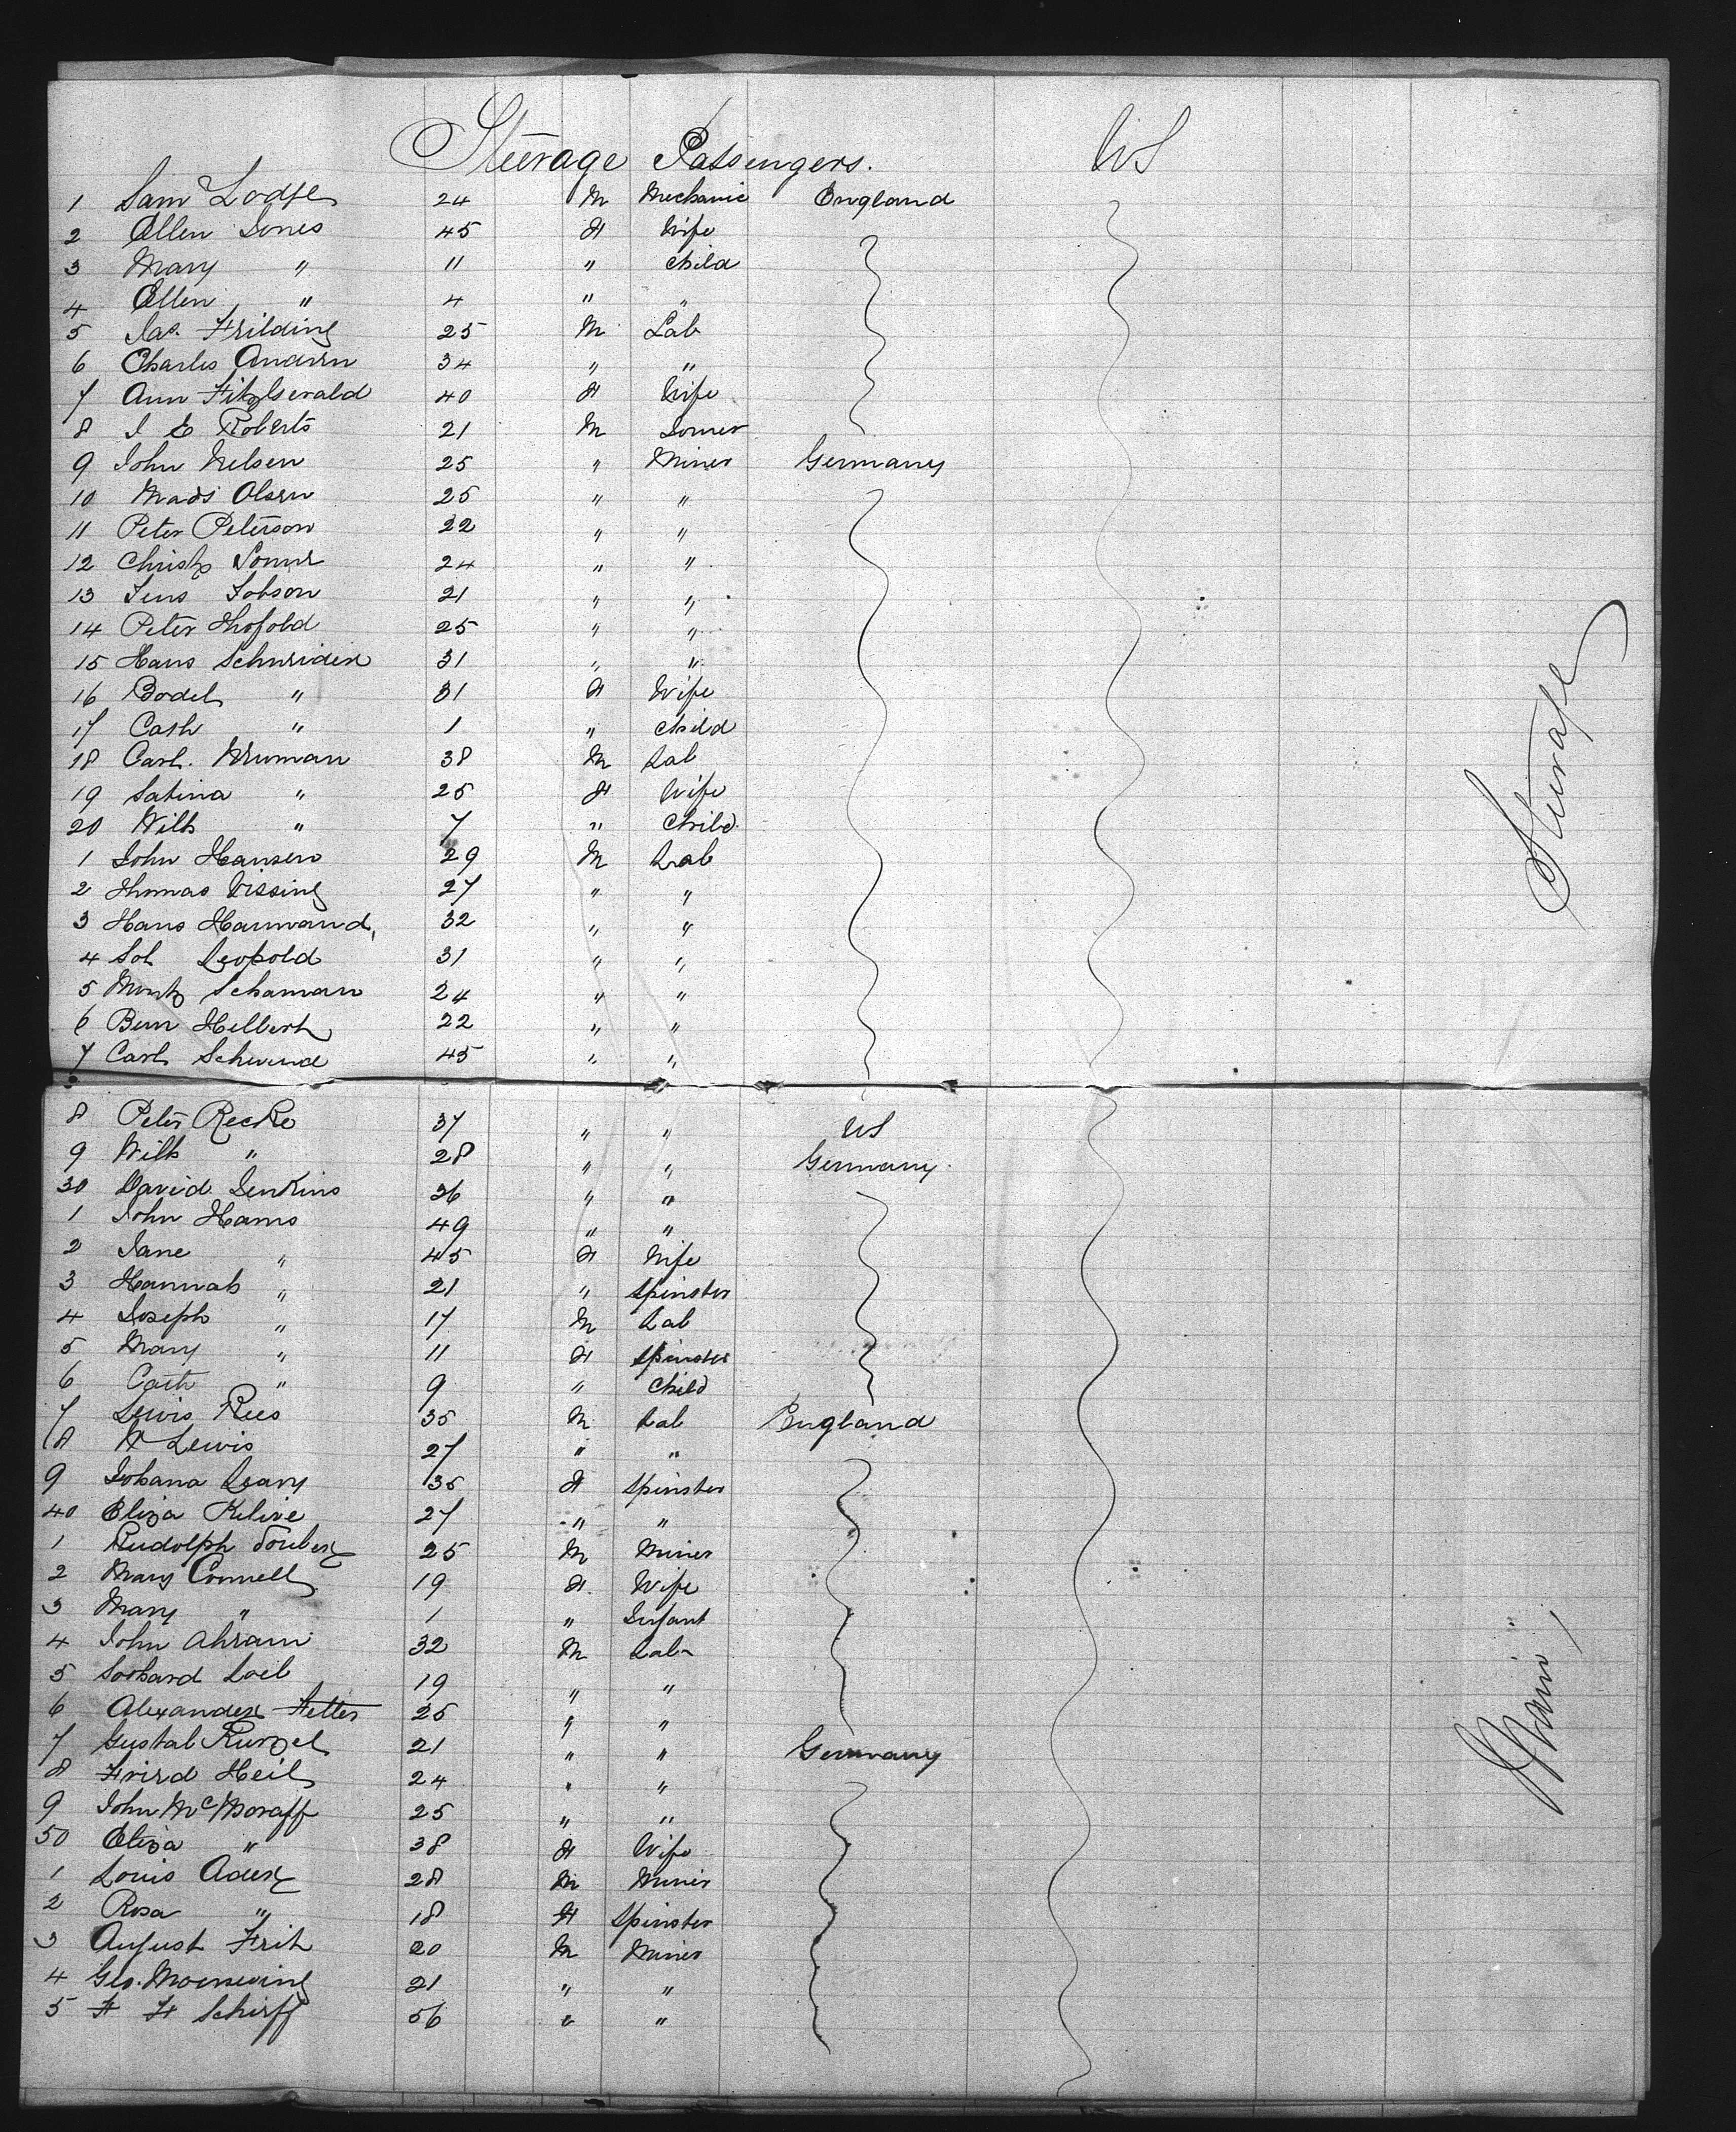 Steerage Passengers. US
1 Sam Lodge 24 M Mechanic England
2 Ellen Jones 45 F Wife
3 Mary " 11 " Child
4 Ellen " 4 " "
5 Jas. Feilding 25 M Lab
6 Charles 34 " "
7 Ann Fitzgerald 40 F Wife
8 J E Roberts 21 M
9 John Nelsen 25 " Miner Germany
10 Mads Olsen 25 " "
11 Peter Peterson 22 " "
12 24 " "
13 Jens Jobson 21 " "
14 Peter 25 " "
15 Hans Schneider 31 " "
16 Bodel " 31 F Wife
17 Cath " 1 " Child
18 Carl. Neuman 38 M Lab
19 Satina " 25 F Wife
20 Wilh " 7 " Child
1 John Hansen 29 M Lab
2 Thomas Vissing 27 " "
3 Hans 32 " "
4 Sol Leopold 31 " "
5 Schaman 24 " "
6 Helbert 22 " "
7 Carl 45 " "
8 Peter Recke 37 " " US
9 Wilh " 28 " " Germany
30 David Jenkins 36 " "
1 John Harris 49 " "
2 Jane " 45 F Wife
3 Hannah " 21 " Spinster
4 Joseph " 17 M Lab
5 Mary " 11 F Spinster
6 Cath " 9 " Child
7 Lewis Rees 35 M Lab England
8 Lewis 27 " "
9 Johana Leary 35 F Spinster
40 Eliza 27 " "
1 Rudolph 25 M Miner
2 Mary Connell 19 F Wife
3 Mary " 1 " Infant
4 John Ahram 32 M Lab
5 Loeb 19 " "
6 Alexander Fetter 25 " "
7 Gustal Kurzel 21 " " Germany
8 Heil 24 " "
9 John 25 " "
50 Eliza " 38 F Wife
1 Louis Ader 28 M Miner
2 Rosa " 18 F Spinster
3 August 20 M Miner
4 Geo. 21 " "
5 F F Schirff 56 " "
Steerage